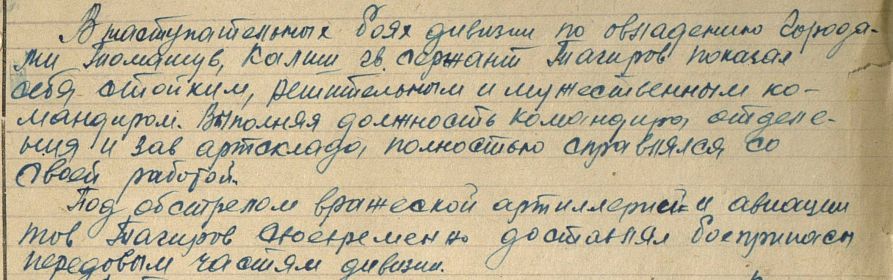 В наступательных боях дивизии по овладению города-
ми Томашув, Калиш гв. сержант Тагиров показал
себя стойким, решительным и мужественным ко-
мандиром. Выполняя должность командира отделе-
ния и зав артсклада, полностью справлялся со
своей работой.
Под обстрелом вражеской артиллерией и авиации
тов Тагиров своевременно доставлял боеприпасы
передовым частям дивизии.